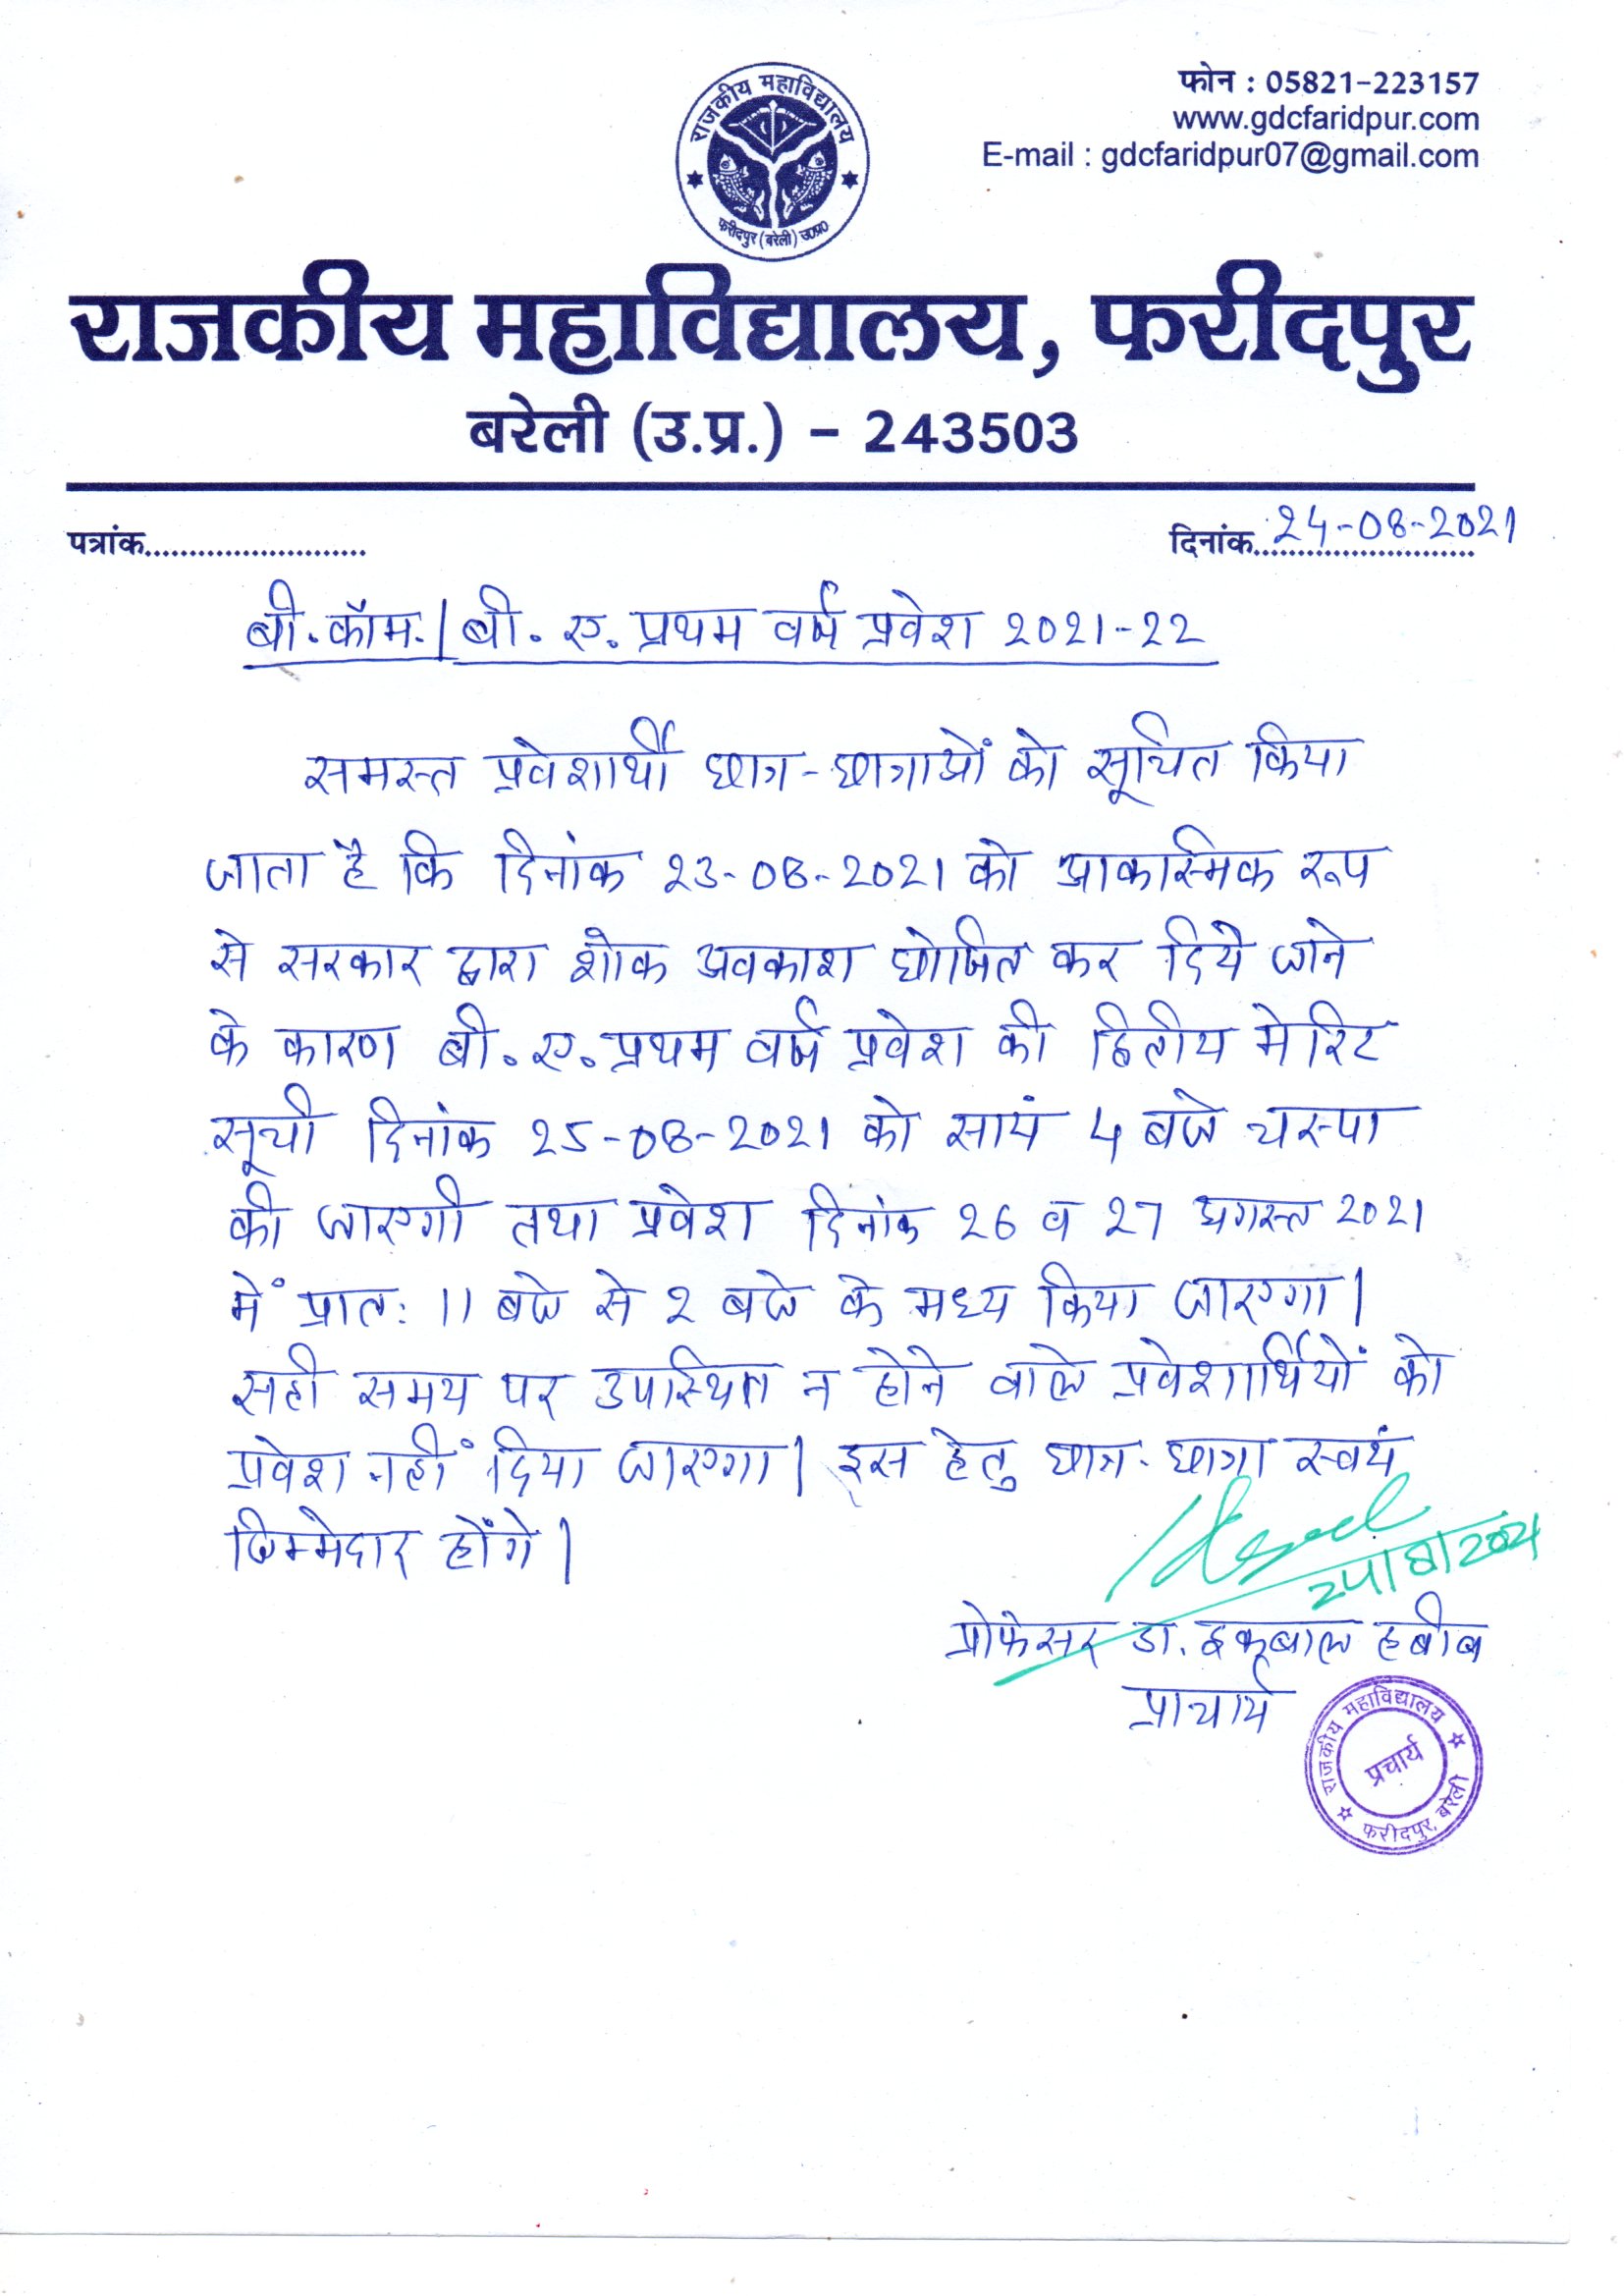 फोन : 05821-223157
www.gdcfaridpur.com
E-mail : gdcfaridpur07@gmail.com
राजकीय महाविद्यालय
फरीदपुर (बरेली) उ०प्र०
राजकीय महाविद्यालय, फरीदपुर
बरेली (उ.प्र.) - 243503
पत्रांक......................... दिनांक 24-08-2021
बी. कॉम. / बी. ए. प्रथम वर्ष प्रवेश 2021-22
समस्त प्रवेशार्थी छात्र-छात्राओं को सूचित किया
जाता है कि दिनांक 23-08-2021 को आकास्मिक रूप
से सरकार द्वारा शोक अवकाश घोषित कर दिये जाने
के कारण बी. ए. प्रथम वर्ष प्रवेश की द्वितीय मेरिट
सूची दिनांक 25-08-2021 को सायं 4 बजे चस्पा
की जाएगी तथा प्रवेश दिनांक 26 व 27 अगस्त 2021
में प्रात: 11 बजे से 2 बजे के मध्य किया जाएगा।
सही समय पर उपस्थित न होने वाले प्रवेशार्थियों को
प्रवेश नहीं दिया जाएगा। इस हेतु छात्र-छात्रा स्वयं
जिम्मेदार होंगे।
प्रोफेसर डा. इकबाल हबीब
प्राचार्य
राजकीय महाविद्यालय
प्रचार्य
फरीदपुर, बरेली